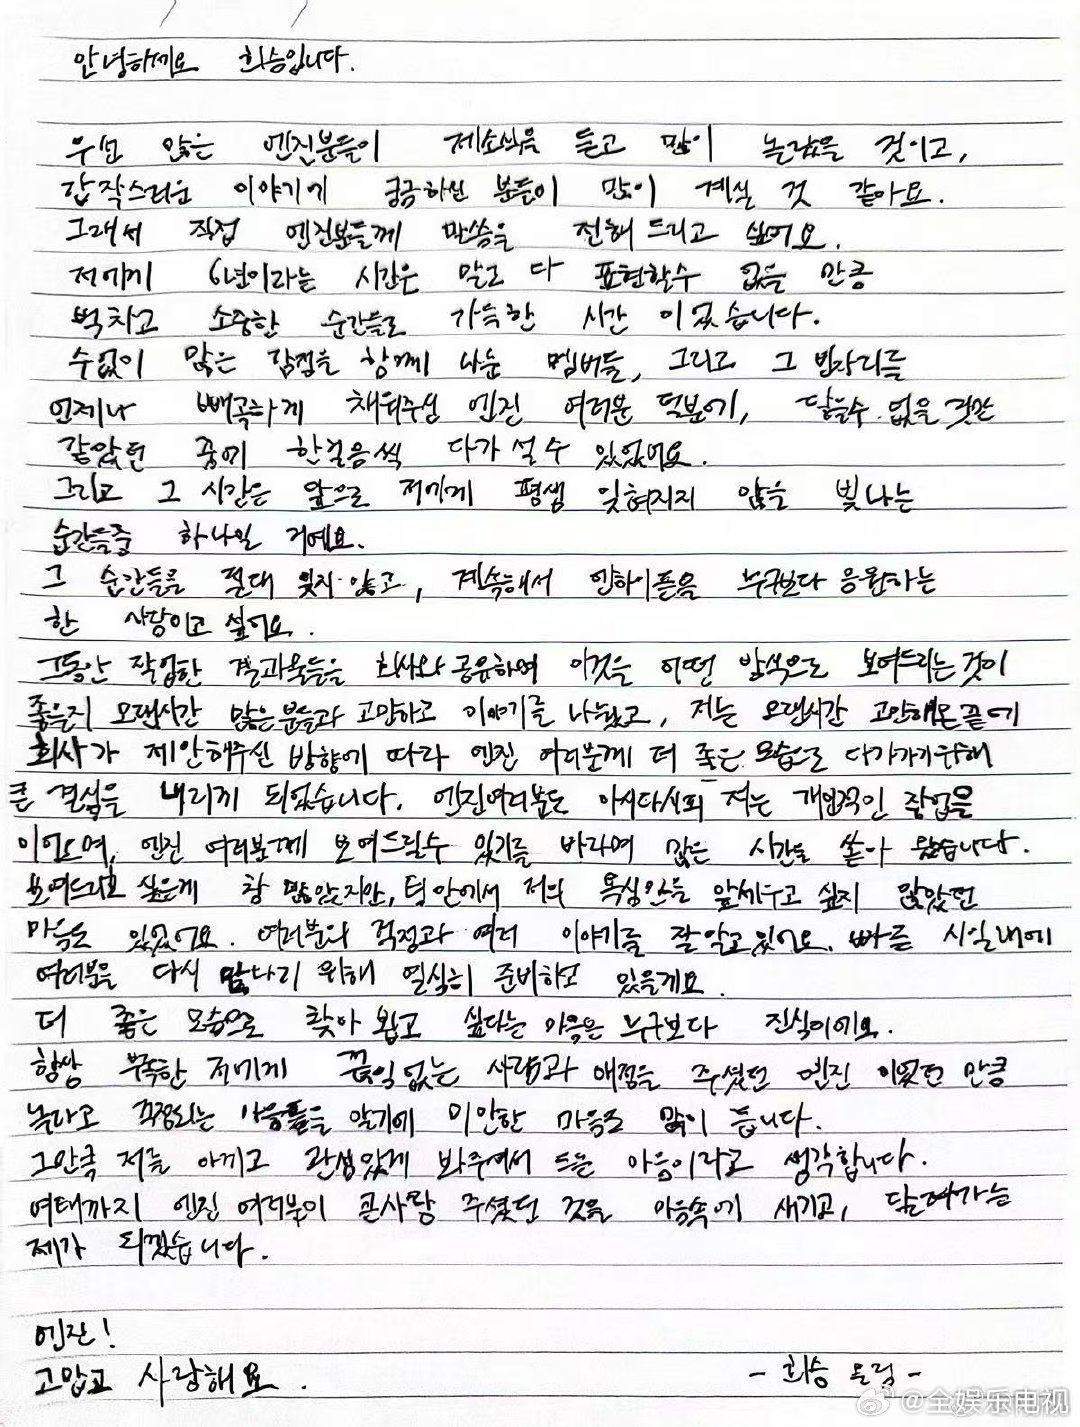 안녕하세요 희승입니다.
우선 많은 엔진분들이 제소식을 듣고 많이 놀랐을 것이고,
갑작스러운 이야기에 궁금하신 분들이 많이 계실 것 같아요.
그래서 직접 엔진분들께 말씀을 전해 드리고 싶어요.
저에게 6년이라는 시간은 말로 다 표현할수 없을 만큼
벅차고 소중한 순간들로 가득한 시간 이었습니다.
수없이 많은 감정을 함께 나눈 멤버들, 그리고 그 빈자리를
언제나 빼곡하게 채워주신 엔진 여러분 덕분에, 닿을수 없을 것만
같았던 꿈에 한걸음씩 다가 설 수 있었어요.
그리고 그 시간은 앞으로 저에게 평생 잊혀지지 않을 빛나는
순간들중 하나일 거예요.
그 순간들을 절대 잊지 않고, 계속해서 엔하이픈을 누구보다 응원하는
한 사람이고 싶어요.
그동안 작업한 결과물들을 회사와 공유하며 이것을 어떤 방식으로 보여드리는 것이
좋을지 오랜시간 많은분들과 고민하고 이야기를 나눴고, 저는 오랜시간 고민해온 끝에
회사가 제안해주신 방향에 따라 엔진 여러분께 더 좋은 모습으로 다가가기위해
큰 결심을 내리게 되었습니다. 엔진여러분도 아시다시피 저는 개인적인 작업을
이어오며, 엔진 여러분께 보여드릴수 있기를 바라며 많은 시간을 쏟아 왔습니다.
보여드리고 싶은게 참 많았지만, 팀 안에서 저의 욕심만을 앞세우고 싶지 않았던
마음도 있었어요. 여러분의 걱정과 여러 이야기를 잘 알고있어요. 빠른 시일내에
여러분을 다시 만나기 위해 열심히 준비하고 있을게요.
더 좋은 모습으로 찾아 뵙고 싶다는 마음은 누구보다 진심이에요.
항상 부족한 저에게 끊임없는 사랑과 애정을 주셨던 엔진 이었던 만큼
놀라고 걱정되는 마음들을 알기에 미안한 마음도 많이 듭니다.
그만큼 저를 아끼고 관심있게 봐주셔서 드는 마음이라고 생각합니다.
여태까지 엔진 여러분이 큰사랑 주셨던 것을 마음속에 새기고, 달려가는
제가 되겠습니다.
엔진!
고맙고 사랑해요.
- 희승 올림 -
@全娱乐电视